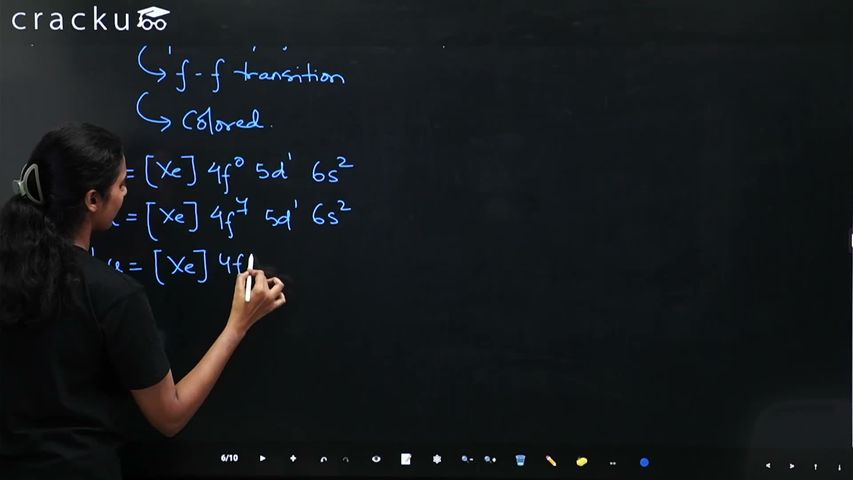 cracku
f-f transition
Colored.
= [Xe] 4f⁰ 5d¹ 6s²
= [Xe] 4f⁷ 5d¹ 6s²
= [Xe] 4f
6/10